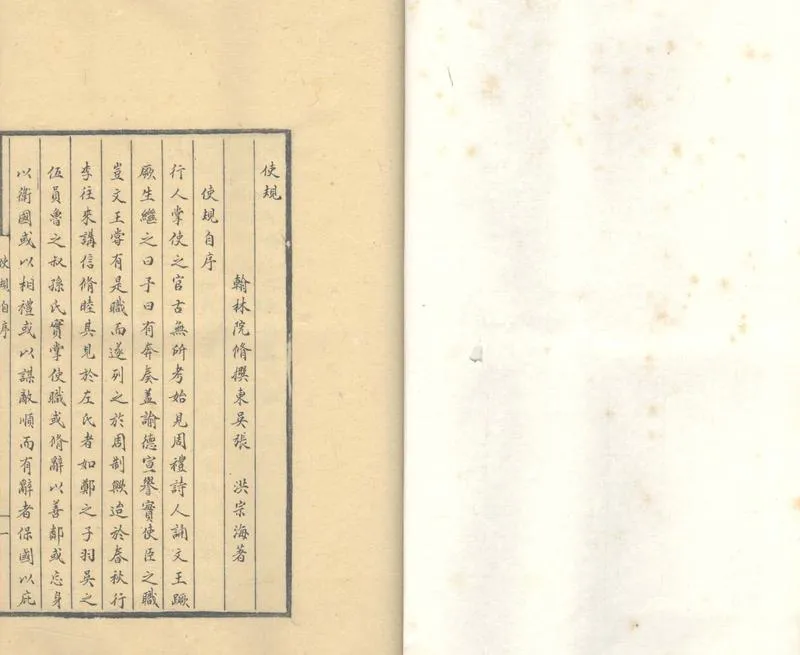 使規
翰林院脩撰東吳張 洪宗海著
使規自序
行人掌使之官古無所考始見周禮詩人誦文王蹶
厥生繼之曰予曰有奔奏蓋諭德宣譽實使臣之職
豈文王嘗有是職而遂列之於周制歟迨於春秋行
李往來講信脩睦其見於左氏者如鄭之子羽吳之
伍員魯之叔孫氏實掌使職或脩辭以善鄰或忘身
以衛國或以相禮或以謀敵順而有辭者保國以庇
使規自序
一